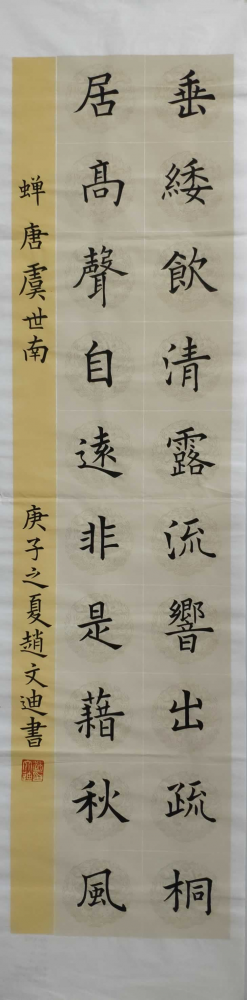 垂緌飲清露流響出疏桐
居高聲自遠非是藉秋風
蝉 唐 虞世南 庚子之夏趙文迪書